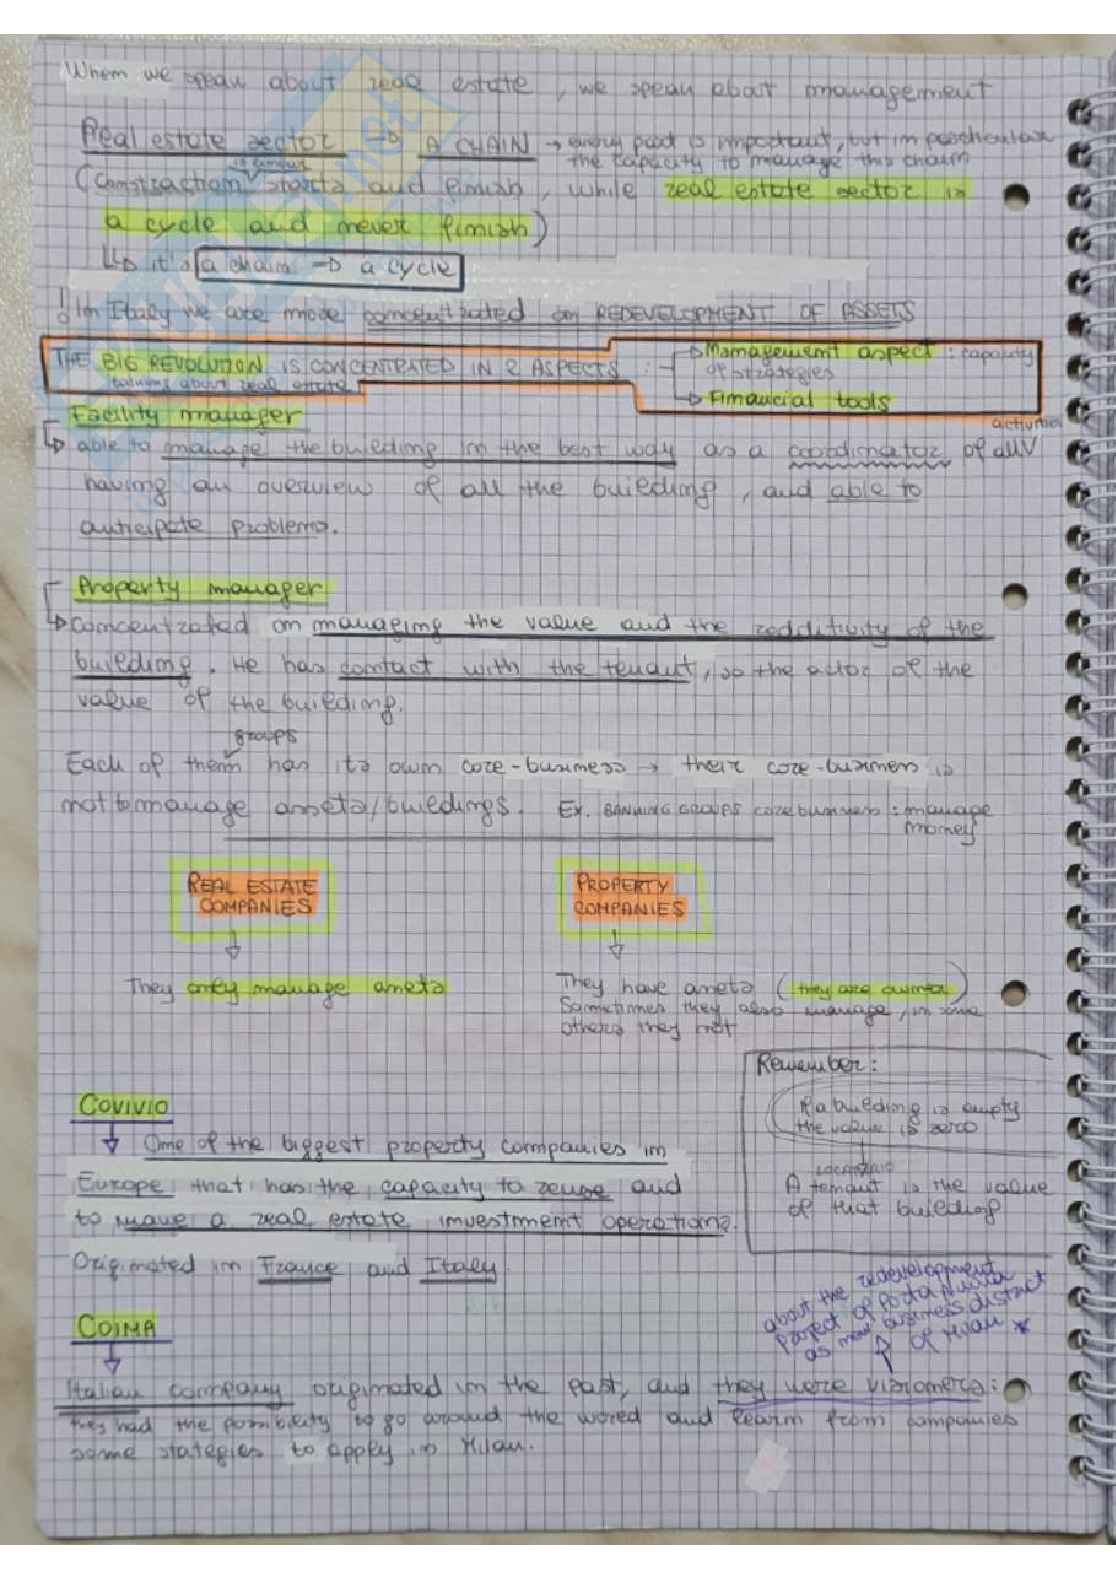 When we speak about real estate, we speak about management
Real estate sector → A CHAIN → every part is important, but in particular
the capacity to manage this chain
(Construction starts and finish, while real estate sector is
a cycle and never finish)
↳ it's a chain → a cycle
! In Italy we are more concentrated on REDEVELOPMENT OF ASSETS
THE BIG REVOLUTION IS CONCENTRATED IN 2 ASPECTS :
talking about real estate
→ Management aspect : capacity
of strategies
→ Financial tools
Facility manager
activities
↳ able to manage the building in the best way as a coordinator of all
having an overview of all the building, and able to
anticipate problems.
Property manager
↳ concentrated on managing the value and the redditivity of the
building. He has contact with the tenant, so the actor of the
value of the building.
groups
Each of them has its own core-business → their core-business is
not to manage assets/buildings. Ex. BANKING GROUPS core business : manage
money
REAL ESTATE
COMPANIES
They only manage assets
PROPERTY
COMPANIES
They have assets (they are owner)
Sometimes they also manage, in some
others they not
Remember:
If a building is empty
the value is zero
A tenant is the value
of that building
COVIVIO
One of the biggest property companies in
Europe that has the capacity to reuse and
to make a real estate investment operations.
Originated in France and Italy
about the redevelopment
project of Porta Nuova
as new business district
of Milan *
COIMA
Italian company originated in the past, and they were visioners:
they had the possibility to go around the world and learn from companies
some stategies to apply in Milan.